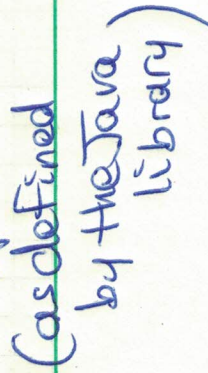 (as defined
by the Java
library)